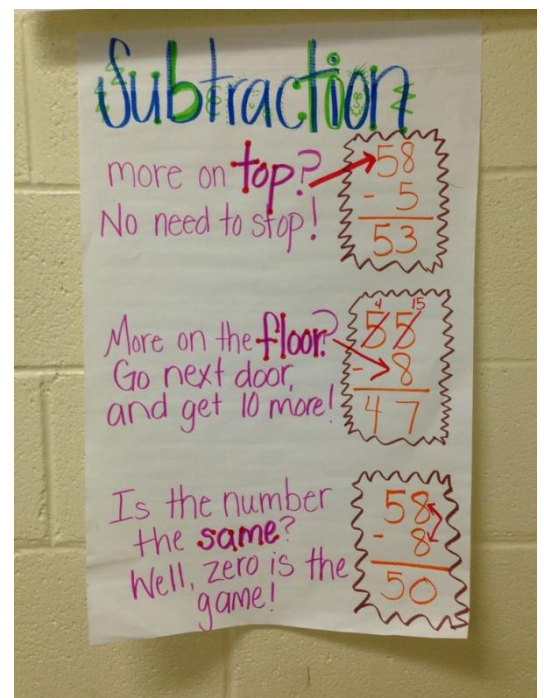 Subtraction
more on top?
No need to stop!
58
- 5
53
More on the floor?
Go next door,
and get 10 more!
4 15
55
- 8
47
Is the number
the same?
Well, zero is the
game!
58
- 8
50